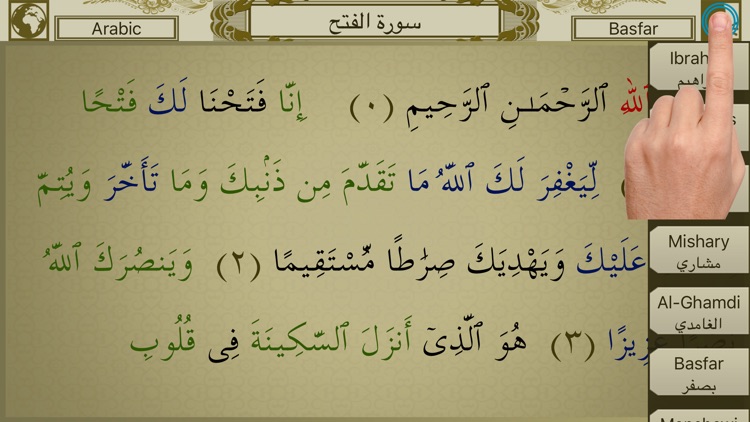 Arabic
سورة الفتح
Basfar
ٱللَّهِ ٱلرَّحْمَـٰنِ ٱلرَّحِيمِ (٠) إِنَّا فَتَحْنَا لَكَ فَتْحًا
لِّيَغْفِرَ لَكَ ٱللَّهُ مَا تَقَدَّمَ مِن ذَنۢبِكَ وَمَا تَأَخَّرَ وَيُتِمَّ
عَلَيْكَ وَيَهْدِيَكَ صِرَٰطًا مُّسْتَقِيمًا (٢) وَيَنصُرَكَ ٱللَّهُ
عَزِيزًا (٣) هُوَ ٱلَّذِىٓ أَنزَلَ ٱلسَّكِينَةَ فِى قُلُوبِ
Mishary
مشاري
Al-Ghamdi
الغامدي
Basfar
بصفر